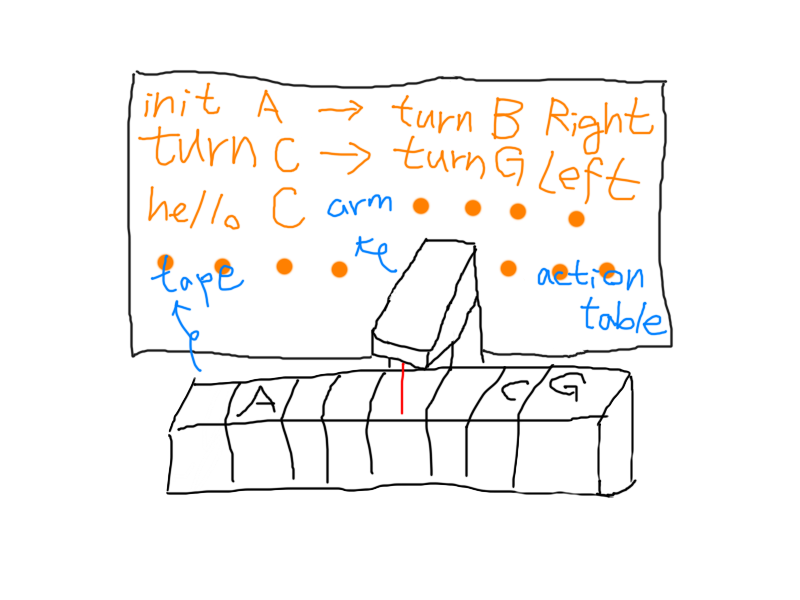 init A → turn B Right
turn C → turn G Left
hello C
arm
tape
action
table
A
C G